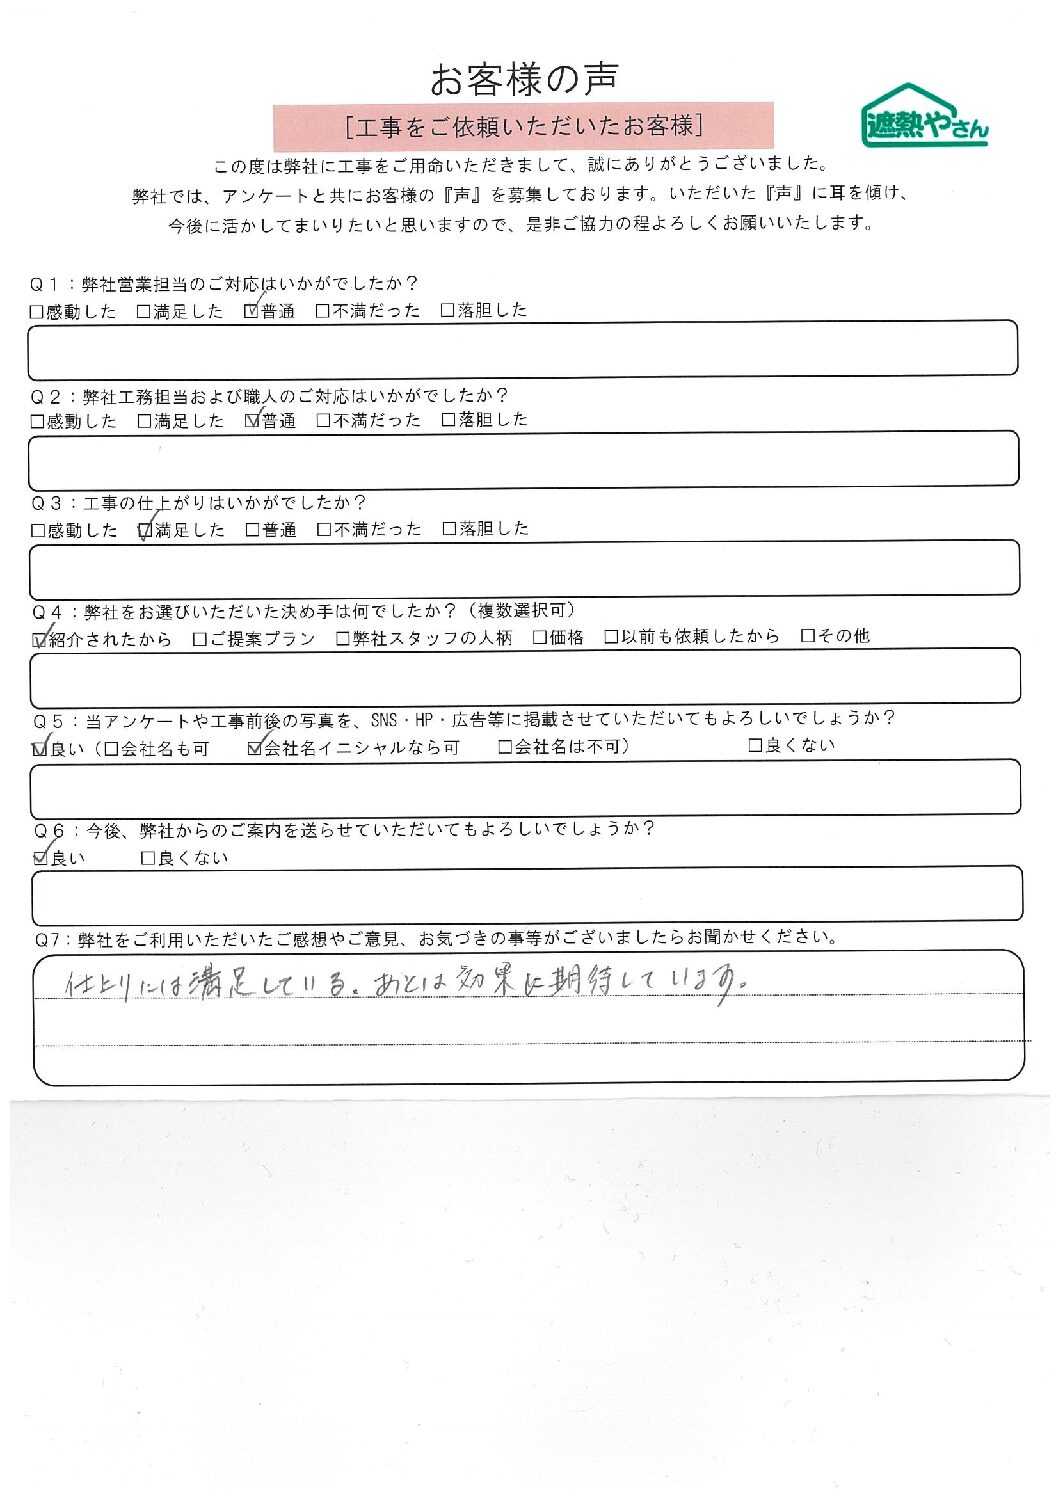 お客様の声
[工事をご依頼いただいたお客様]
遮熱やさん
この度は弊社に工事をご用命いただきまして、誠にありがとうございました。
弊社では、アンケートと共にお客様の『声』を募集しております。いただいた『声』に耳を傾け、
今後に活かしてまいりたいと思いますので、是非ご協力の程よろしくお願いいたします。
Q1：弊社営業担当のご対応はいかがでしたか？
□感動した □満足した ☑普通 □不満だった □落胆した
Q2：弊社工務担当および職人のご対応はいかがでしたか？
□感動した □満足した ☑普通 □不満だった □落胆した
Q3：工事の仕上がりはいかがでしたか？
□感動した ☑満足した □普通 □不満だった □落胆した
Q4：弊社をお選びいただいた決め手は何でしたか？（複数選択可）
☑紹介されたから □ご提案プラン □弊社スタッフの人柄 □価格 □以前も依頼したから □その他
Q5：当アンケートや工事前後の写真を、SNS・HP・広告等に掲載させていただいてもよろしいでしょうか？
☑良い（□会社名も可 ☑会社名イニシャルなら可 □会社名は不可） □良くない
Q6：今後、弊社からのご案内を送らせていただいてもよろしいでしょうか？
☑良い □良くない
Q7：弊社をご利用いただいたご感想やご意見、お気づきの事等がございましたらお聞かせください。
仕上りには満足している。あとは効果に期待しています。